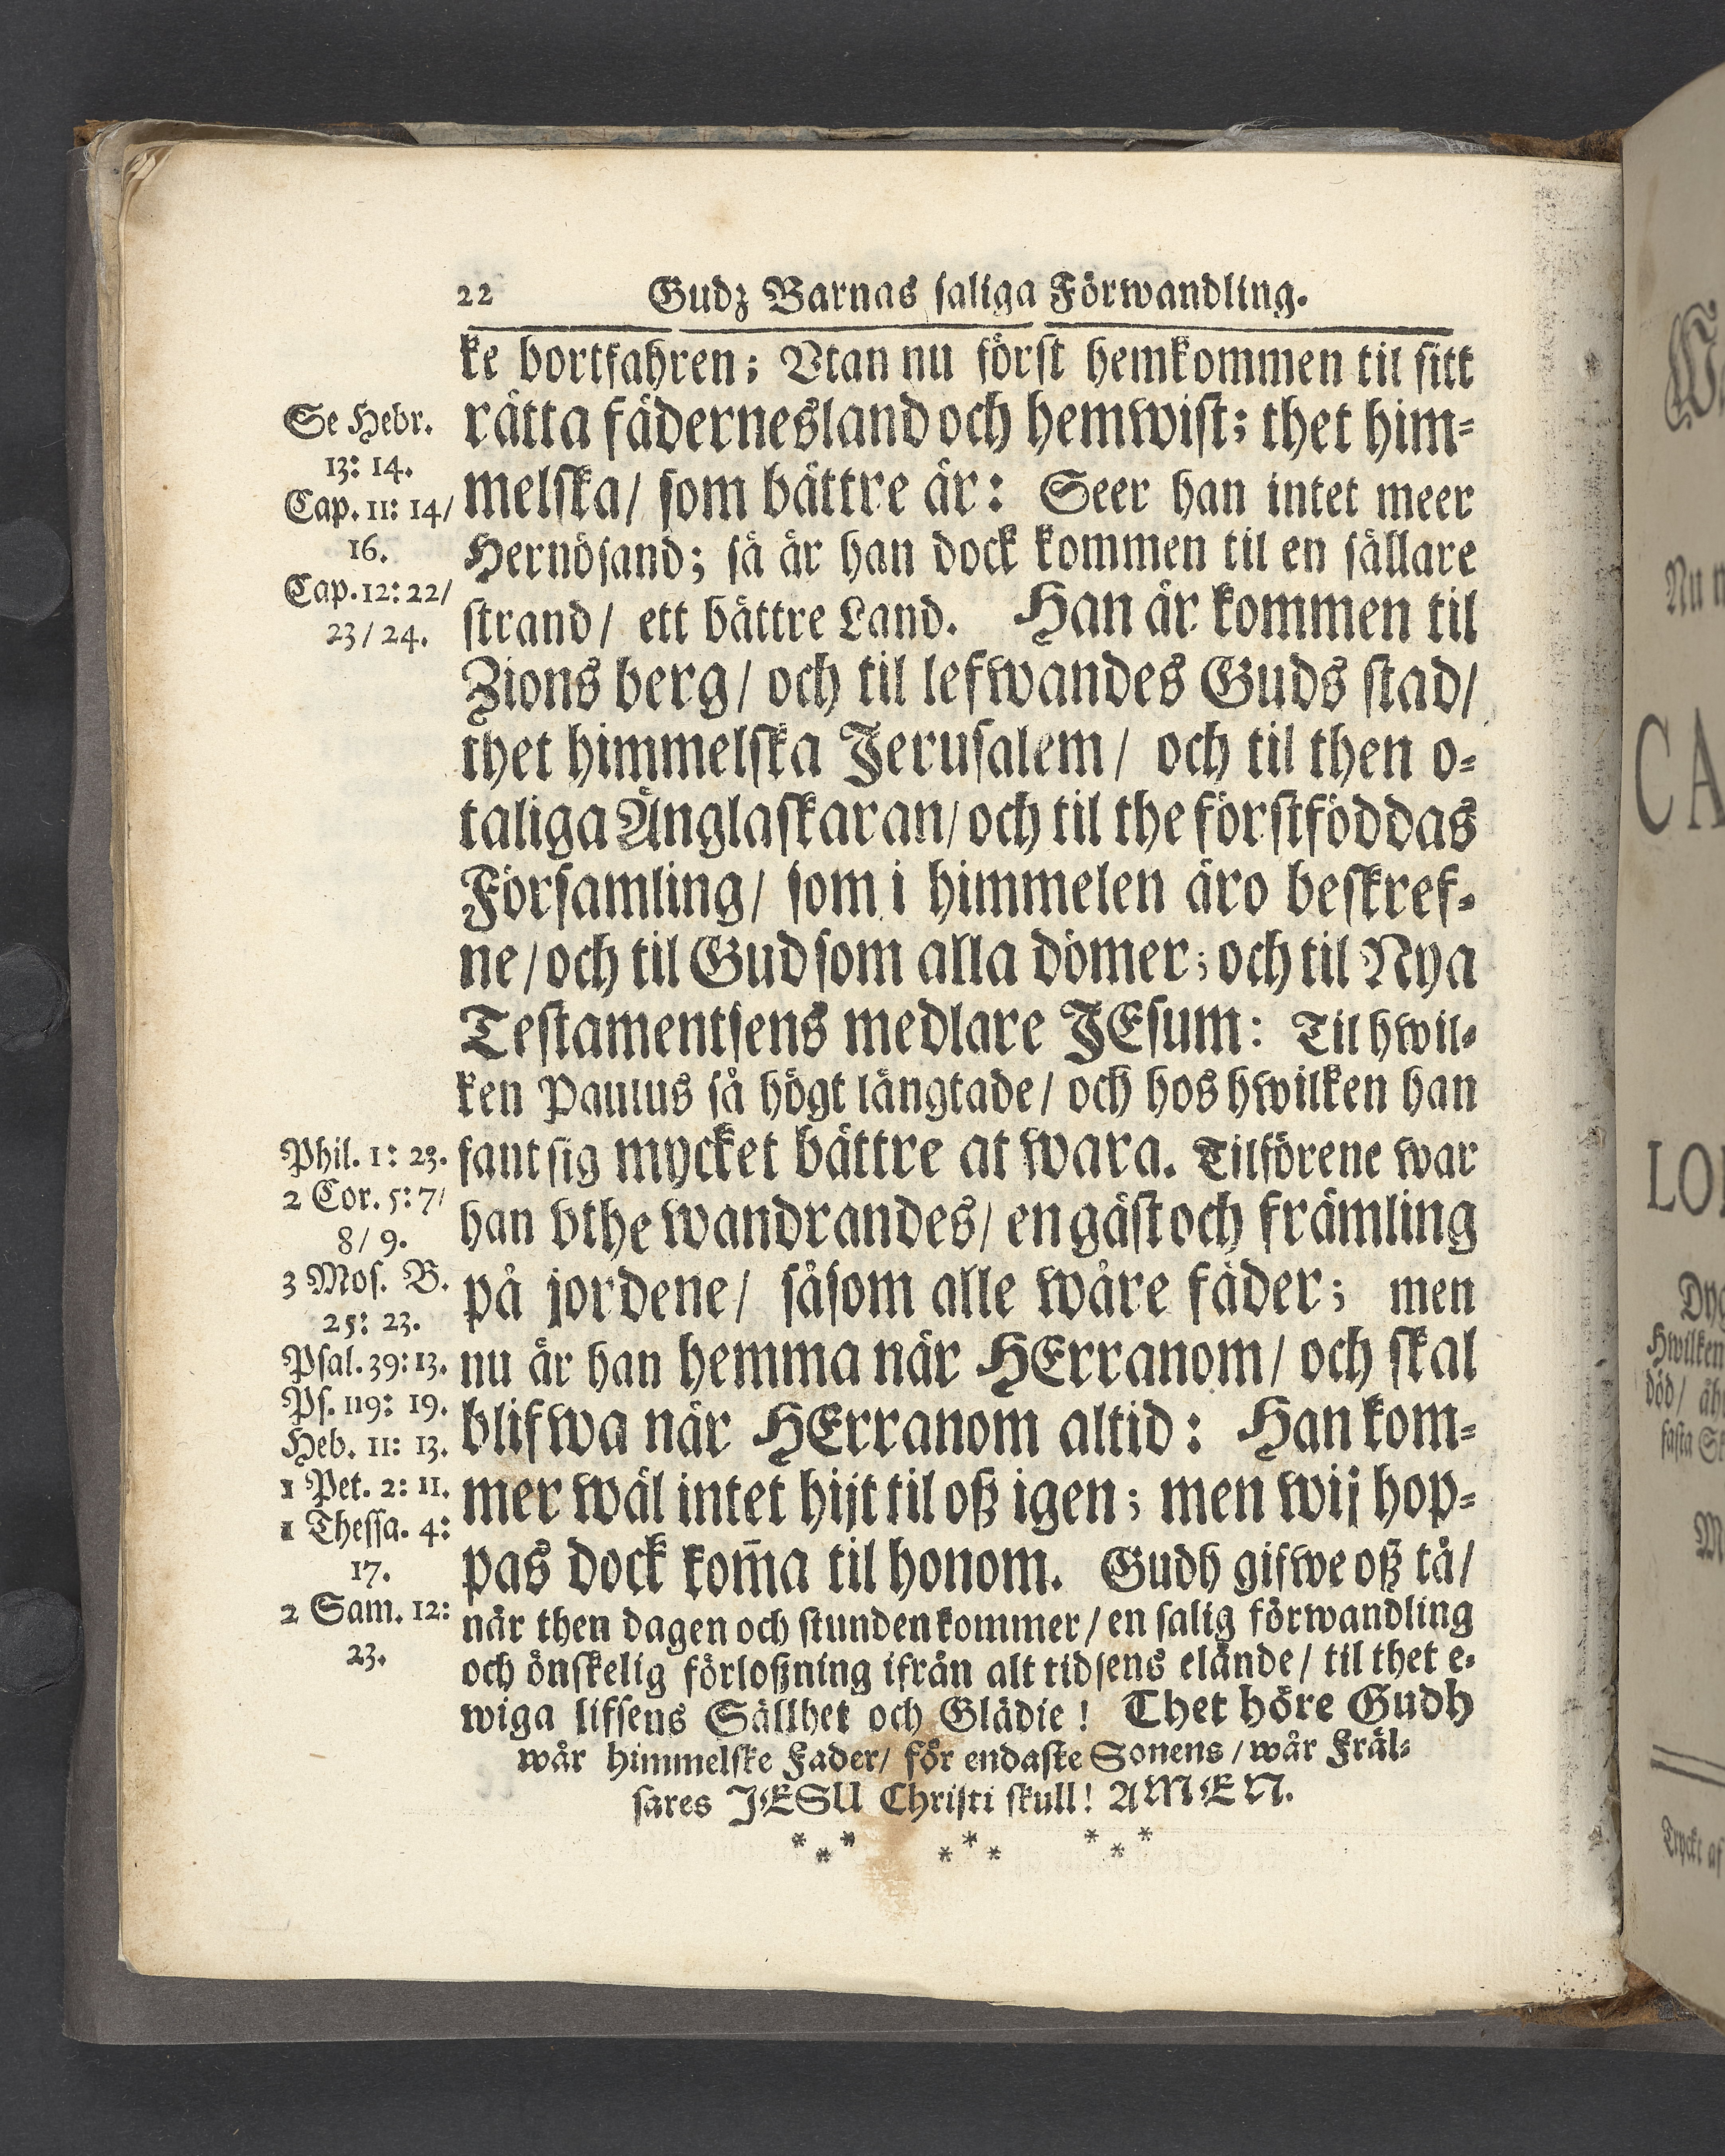 22 Gudz Barnas saliga Förwandling.
ke bortfahren; Vtan nu först hemkommen til sitt
rätta fädernesland och hemwist; thet him-
melska/ som bättre är: Seer han intet meer
Hernösand; så är han dock kommen til en sällare
strand/ ett bättre Land. Han är kommen til
Zions berg/ och til lefwandes Guds stad/
thet himmelska Jerusalem/ och til then o-
taliga Änglaskaran/ och til the förstföddas
Församling/ som i himmelen äro beskref-
ne/ och til Gud som alla dömer; och til Nya
Testamentsens medlare JEsum: Til hwil-
ken Paulus så högt längtade/ och hos hwilken han
fant sig mycket bättre at wara. Tilförene war
han vthe wandrandes/ en gäst och främling
på jordene/ såsom alle wåre fäder; men
nu är han hemma när HErranom/ och skal
blifwa när HErranom altid: Han kom-
mer wäl intet hijt til oß igen; men wij hop-
pas dock kom̃a til honom. Gudh gifwe oß tå/
när then dagen och stunden kommer/ en salig förwandling
och önskelig förloßning ifrån alt tidsens elände/ til thet e-
wiga lifsens Sällhet och Glädie! Thet höre Gudh
wår himmelske Fader/ för endaste Sonens/ wår Fräl-
sares JESU Christi skull! AMEN.
* * * * * * * * *
Se Hebr.
13: 14.
Cap. 11: 14/
16.
Cap. 12: 22/
23/ 24.
Phil. 1: 23.
2 Cor. 5: 7/
8/ 9.
3 Mos. B.
25: 23.
Psal. 39: 13.
Ps. 119: 19.
Heb. 11: 13.
1 Pet. 2: 11.
1 Thessa. 4:
17.
2 Sam. 12:
23.
CA
LO